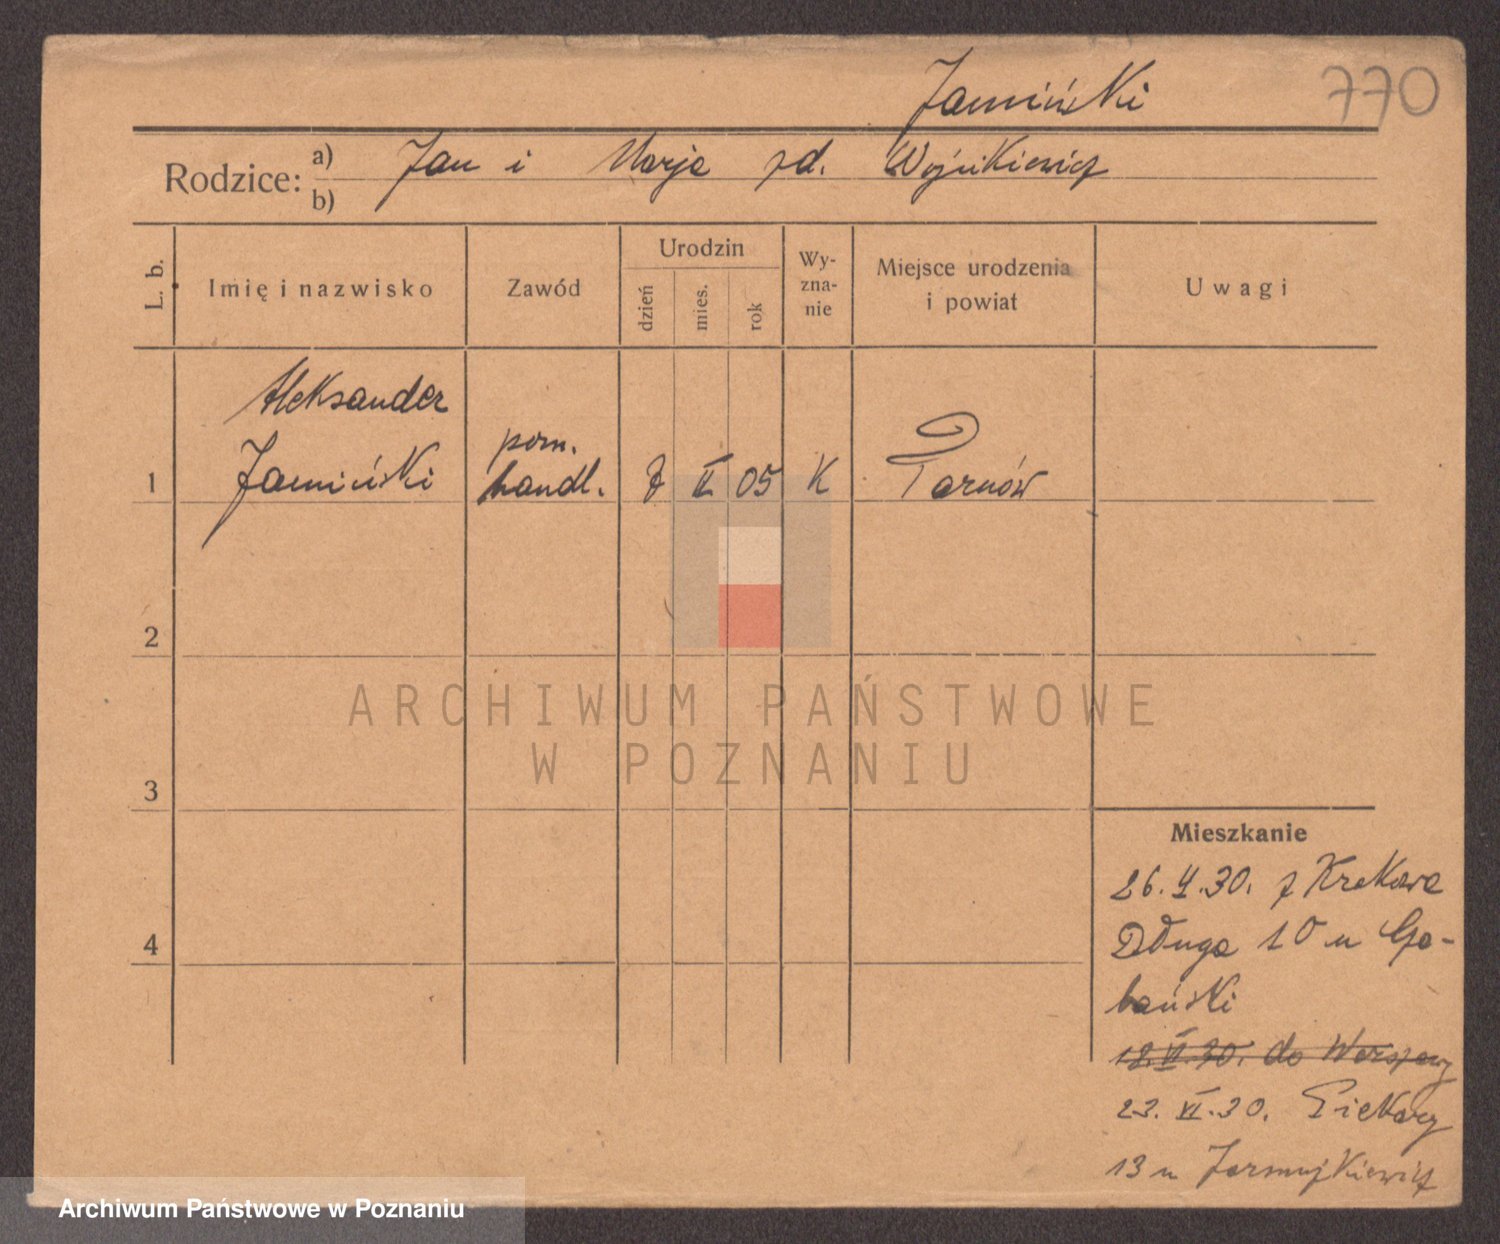 Jamiński 770
Rodzice: a) Jan i Marja zd. Wojnikiewicz
b)
L. b. Imię i nazwisko Zawód Urodzin dzień mies. rok Wy-zna-nie Miejsce urodzenia i powiat Uwagi
Aleksander
1 Jamiński pom. handl. 7 II 05 K Tarnów
2
3
4
Mieszkanie
26. V. 30. z Krakowa
Długa 10 u Ga-
bański
18. VI. 30. do Warszawy
23. VI. 30. Piekary
13 u
ARCHIWUM PAŃSTWOWE
W POZNANIU
Archiwum Państwowe w Poznaniu